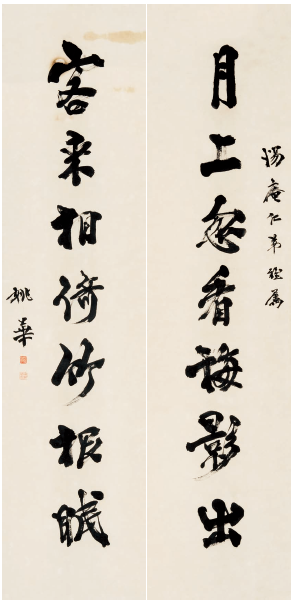 月上忽看梅影出
庵仁弟
客来相倚竹根眠
姚華